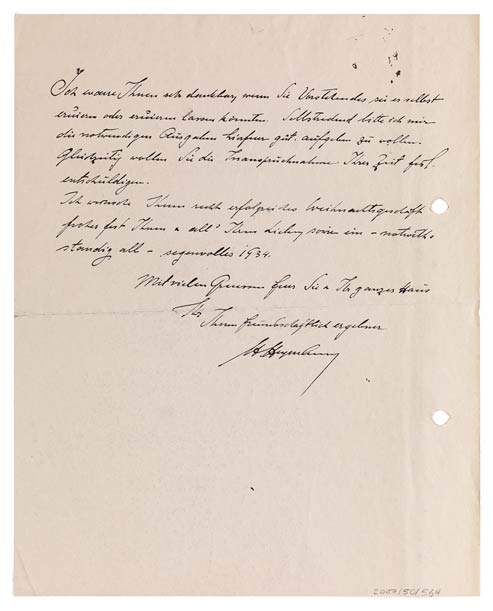 Ich waere Ihnen sehr dankbar, wenn Sie Vorstehendes sei es selbst
eruieren oder eruieren lassen könnten. Selbstredend bitte ich mir
die notwendigen Ausgaben hierfuer gut. aufgeben zu wollen.
Gleichzeitig wollen Sie die Inanspruchnahme Ihrer Zeit
entschuldigen.
Ich wünsche Ihnen recht erfolgreiches Weihnachtsgeschäft
frohes Fest Ihnen & all' Ihren Lieben, sowie ein -
all - segenvolles 1934.
Mit vielen Gruessen fuer Sie & Ihr ganzes Haus
Ihr
Ihnen freundschaftlich ergebener
2007/50/564